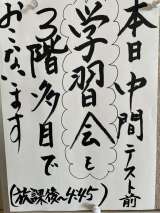 本日中間テスト前
学習会を
3階多目で
おこないます
(放課後〜4:45)